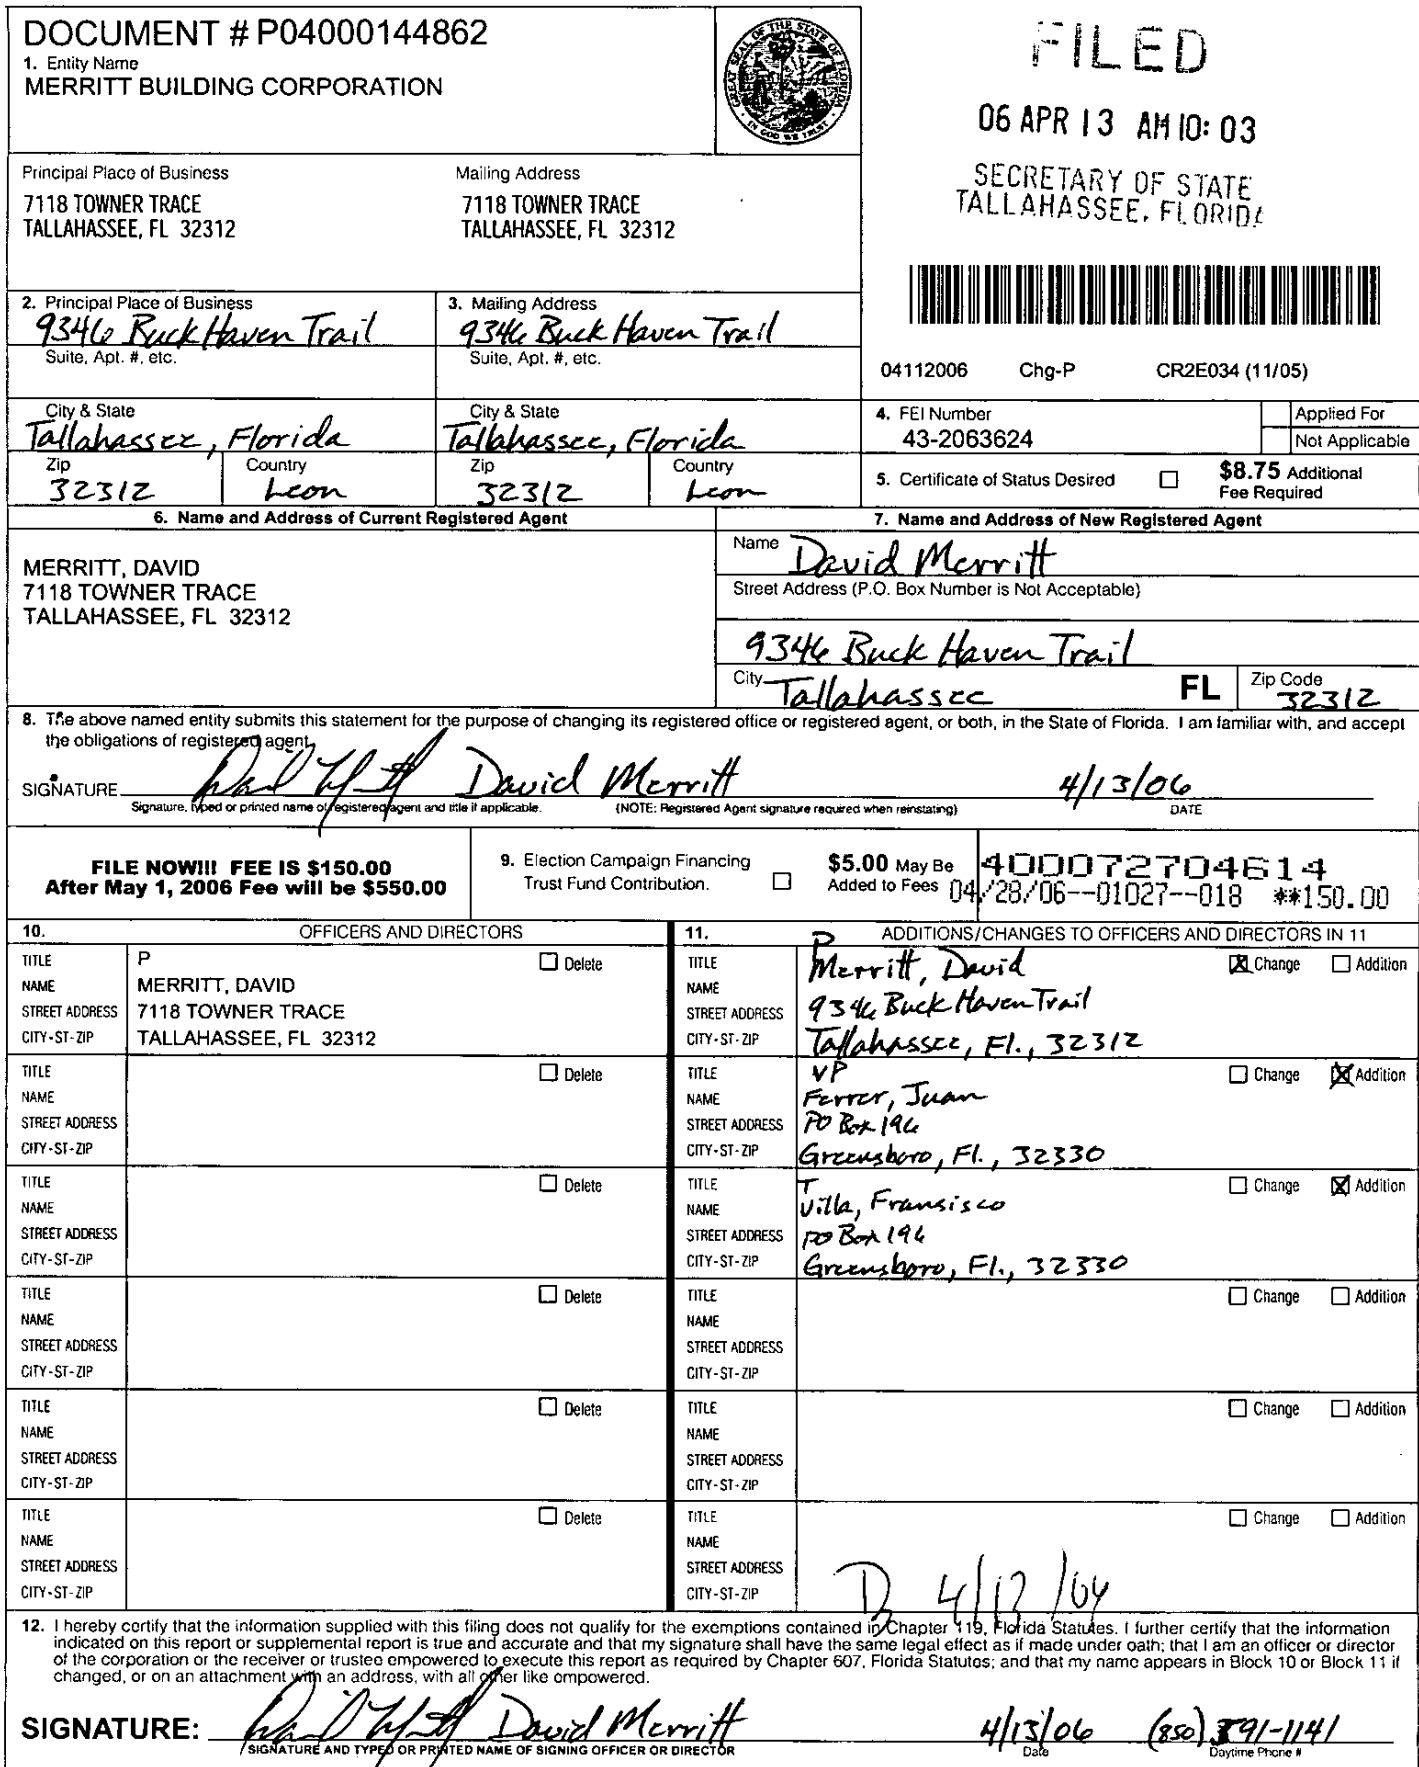 DOCUMENT # P04000144862
1. Entity Name
MERRITT BUILDING CORPORATION
GREAT SEAL OF THE STATE OF FLORIDA
IN GOD WE TRUST
FILED
06 APR 13 AM 10: 03
SECRETARY OF STATE
TALLAHASSEE, FLORIDA
Principal Place of Business
7118 TOWNER TRACE
TALLAHASSEE, FL 32312
Mailing Address
7118 TOWNER TRACE
TALLAHASSEE, FL 32312
2. Principal Place of Business
9346 Buck Haven Trail
Suite, Apt. #, etc.
3. Mailing Address
9346 Buck Haven Trail
Suite, Apt. #, etc.
04112006 Chg-P CR2E034 (11/05)
City & State
Tallahassee, Florida
City & State
Tallahassee, Florida
4. FEI Number
43-2063624
Applied For
Not Applicable
Zip
32312
Country
Leon
Zip
32312
Country
Leon
5. Certificate of Status Desired
$8.75 Additional
Fee Required
6. Name and Address of Current Registered Agent
MERRITT, DAVID
7118 TOWNER TRACE
TALLAHASSEE, FL 32312
7. Name and Address of New Registered Agent
Name David Merritt
Street Address (P.O. Box Number is Not Acceptable)
9346 Buck Haven Trail
City Tallahassee FL Zip Code 32312
8. The above named entity submits this statement for the purpose of changing its registered office or registered agent, or both, in the State of Florida. I am familiar with, and accept
the obligations of registered agent.
SIGNATURE David Merritt 4/13/06
Signature, typed or printed name of registered agent and title if applicable. (NOTE: Registered Agent signature required when reinstating) DATE
FILE NOW!!! FEE IS $150.00
After May 1, 2006 Fee will be $550.00
9. Election Campaign Financing
Trust Fund Contribution.
$5.00 May Be
Added to Fees
400072704614
04/28/06--01027--018 **150.00
10. OFFICERS AND DIRECTORS
TITLE P Delete
NAME MERRITT, DAVID
STREET ADDRESS 7118 TOWNER TRACE
CITY-ST-ZIP TALLAHASSEE, FL 32312
TITLE Delete
NAME
STREET ADDRESS
CITY-ST-ZIP
TITLE Delete
NAME
STREET ADDRESS
CITY-ST-ZIP
TITLE Delete
NAME
STREET ADDRESS
CITY-ST-ZIP
TITLE Delete
NAME
STREET ADDRESS
CITY-ST-ZIP
TITLE Delete
NAME
STREET ADDRESS
CITY-ST-ZIP
11. ADDITIONS/CHANGES TO OFFICERS AND DIRECTORS IN 11
TITLE P Change Addition
NAME Merritt, David
STREET ADDRESS 9346 Buck Haven Trail
CITY-ST-ZIP Tallahassee, Fl., 32312
TITLE VP Change Addition
NAME Ferrer, Juan
STREET ADDRESS PO Box 196
CITY-ST-ZIP Greensboro, Fl., 32330
TITLE T Change Addition
NAME Villa, Fransisco
STREET ADDRESS PO Box 196
CITY-ST-ZIP Greensboro, Fl., 32330
TITLE Change Addition
NAME
STREET ADDRESS
CITY-ST-ZIP
TITLE Change Addition
NAME
STREET ADDRESS
CITY-ST-ZIP
TITLE Change Addition
NAME
STREET ADDRESS
CITY-ST-ZIP
12. I hereby certify that the information supplied with this filing does not qualify for the exemptions contained in Chapter 119, Florida Statutes. I further certify that the information
indicated on this report or supplemental report is true and accurate and that my signature shall have the same legal effect as if made under oath; that I am an officer or director
of the corporation or the receiver or trustee empowered to execute this report as required by Chapter 607, Florida Statutes; and that my name appears in Block 10 or Block 11 if
changed, or on an attachment with an address, with all other like empowered.
SIGNATURE: David Merritt 4/13/06 (850) 591-1141
SIGNATURE AND TYPED OR PRINTED NAME OF SIGNING OFFICER OR DIRECTOR Date Daytime Phone #